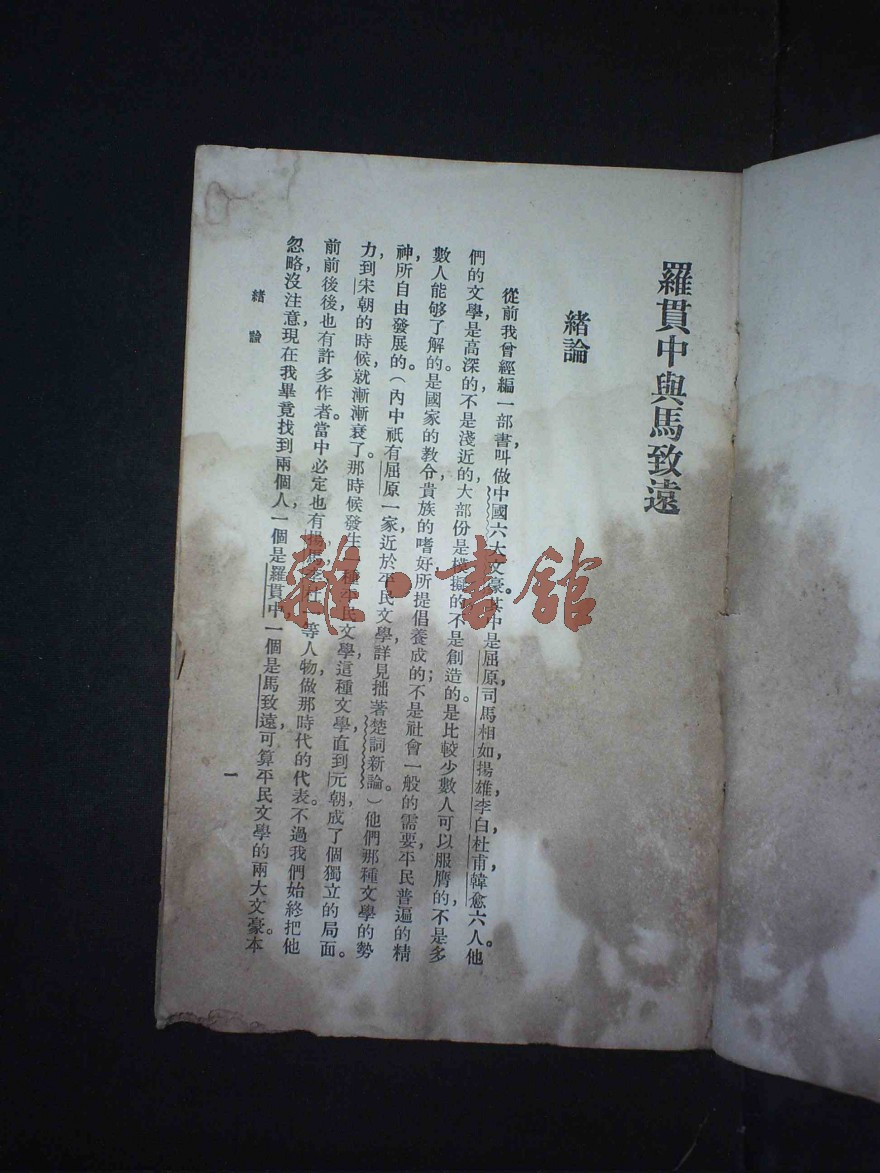 羅貫中與馬致遠
緒論
從前我曾經編一部書叫做中國六大文豪。其中是屈原，司馬相如，揚雄，李白，杜甫，韓愈六人。他
們的文學，是高深的，不是淺近的，大部份是模擬的，不是創造的。是比較少數人可以服膺的，不是多
數人能够了解的。是國家的教令，貴族的嗜好，所提倡養成的；不是社會一般的需要，平民普遍的精
神，所自由發展的。（內中祇有屈原一家近於平民文學，詳見拙著楚詞新論。）他們那種文學的勢
力，到宋朝的時候，就漸漸衰了。那時候發生一種平民文學，這種文學，直到元朝，成了個獨立的局面。
前前後後，也有許多作者。當中必定也有揚馬李杜一等人物，做那時代的代表。不過我們始終把他
忽略，沒注意，現在我畢竟找到兩個人，一個是羅貫中，一個是馬致遠，可算平民文學的兩大文豪。本
緒論
一
雜·書館